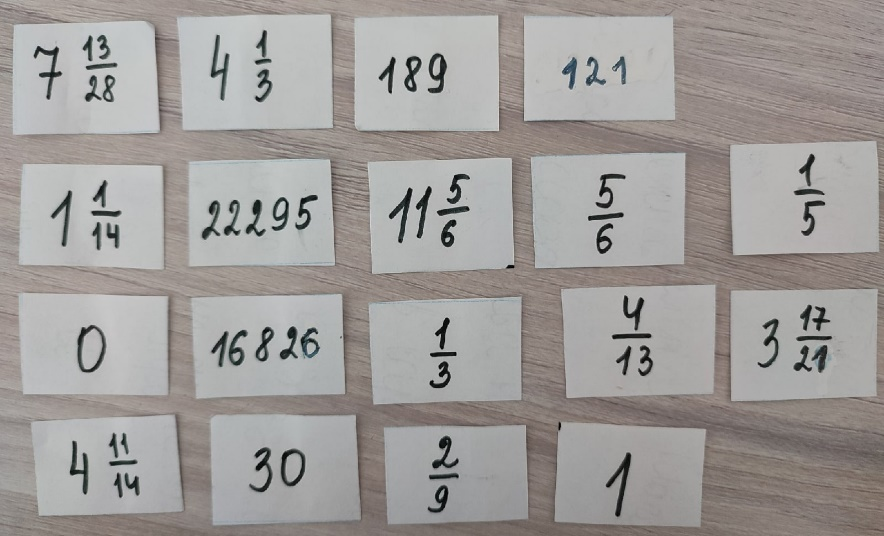 7 13/28 4 1/3 189 121
1 1/14 22295 11 5/6 5/6 1/5
0 16826 1/3 4/13 3 17/21
4 11/14 30 2/9 1